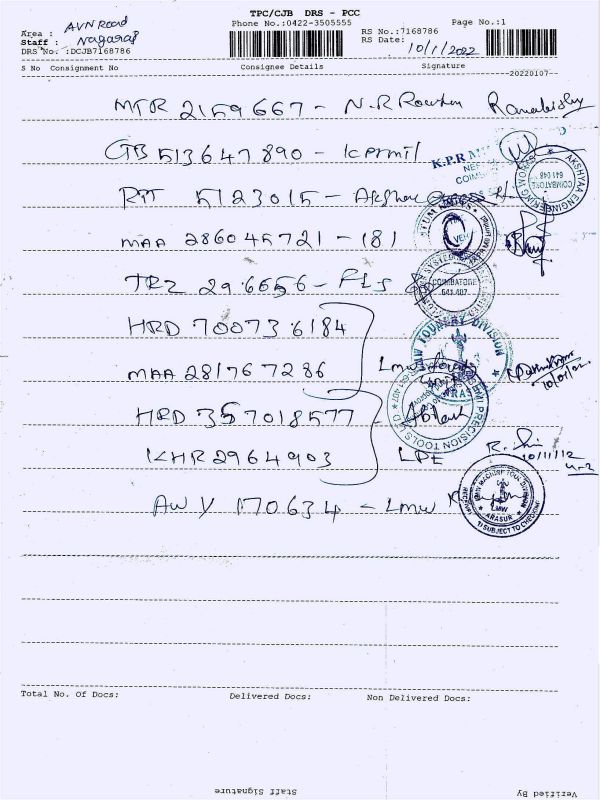 TPC/CJB DRS - PCC
Area : AVN Road Phone No.:0422-3505555 Page No.:1
Staff : Nagaraj RS No.:7168786
DRS No. :DCJB7168786 RS Date: 10/1/2022
S No Consignment No Consignee Details Signature
20220107
MTR 2159667 - N.R
GTB 513647890 - kprmil
5123015 - Akshaya
MAA 286045721 - 181
TRZ 296656 - FLS
HRD 700736184
MAA 281767286 Lmw
HRD 357018577
KHR 2964903 LPE
AWY 170634 - Lmw
K.P.R
AKSHYAA ENGINEERING WORKS
COIMBATORE
641 048
COIMBATORE
641 407
LMW FOUNDRY DIVISION
ARASUR
PRECISION TOOLS
LMW
ARASUR
SUBJECT TO CHECKING
Total No. Of Docs: Delivered Docs: Non Delivered Docs:
Staff Signature Verified By